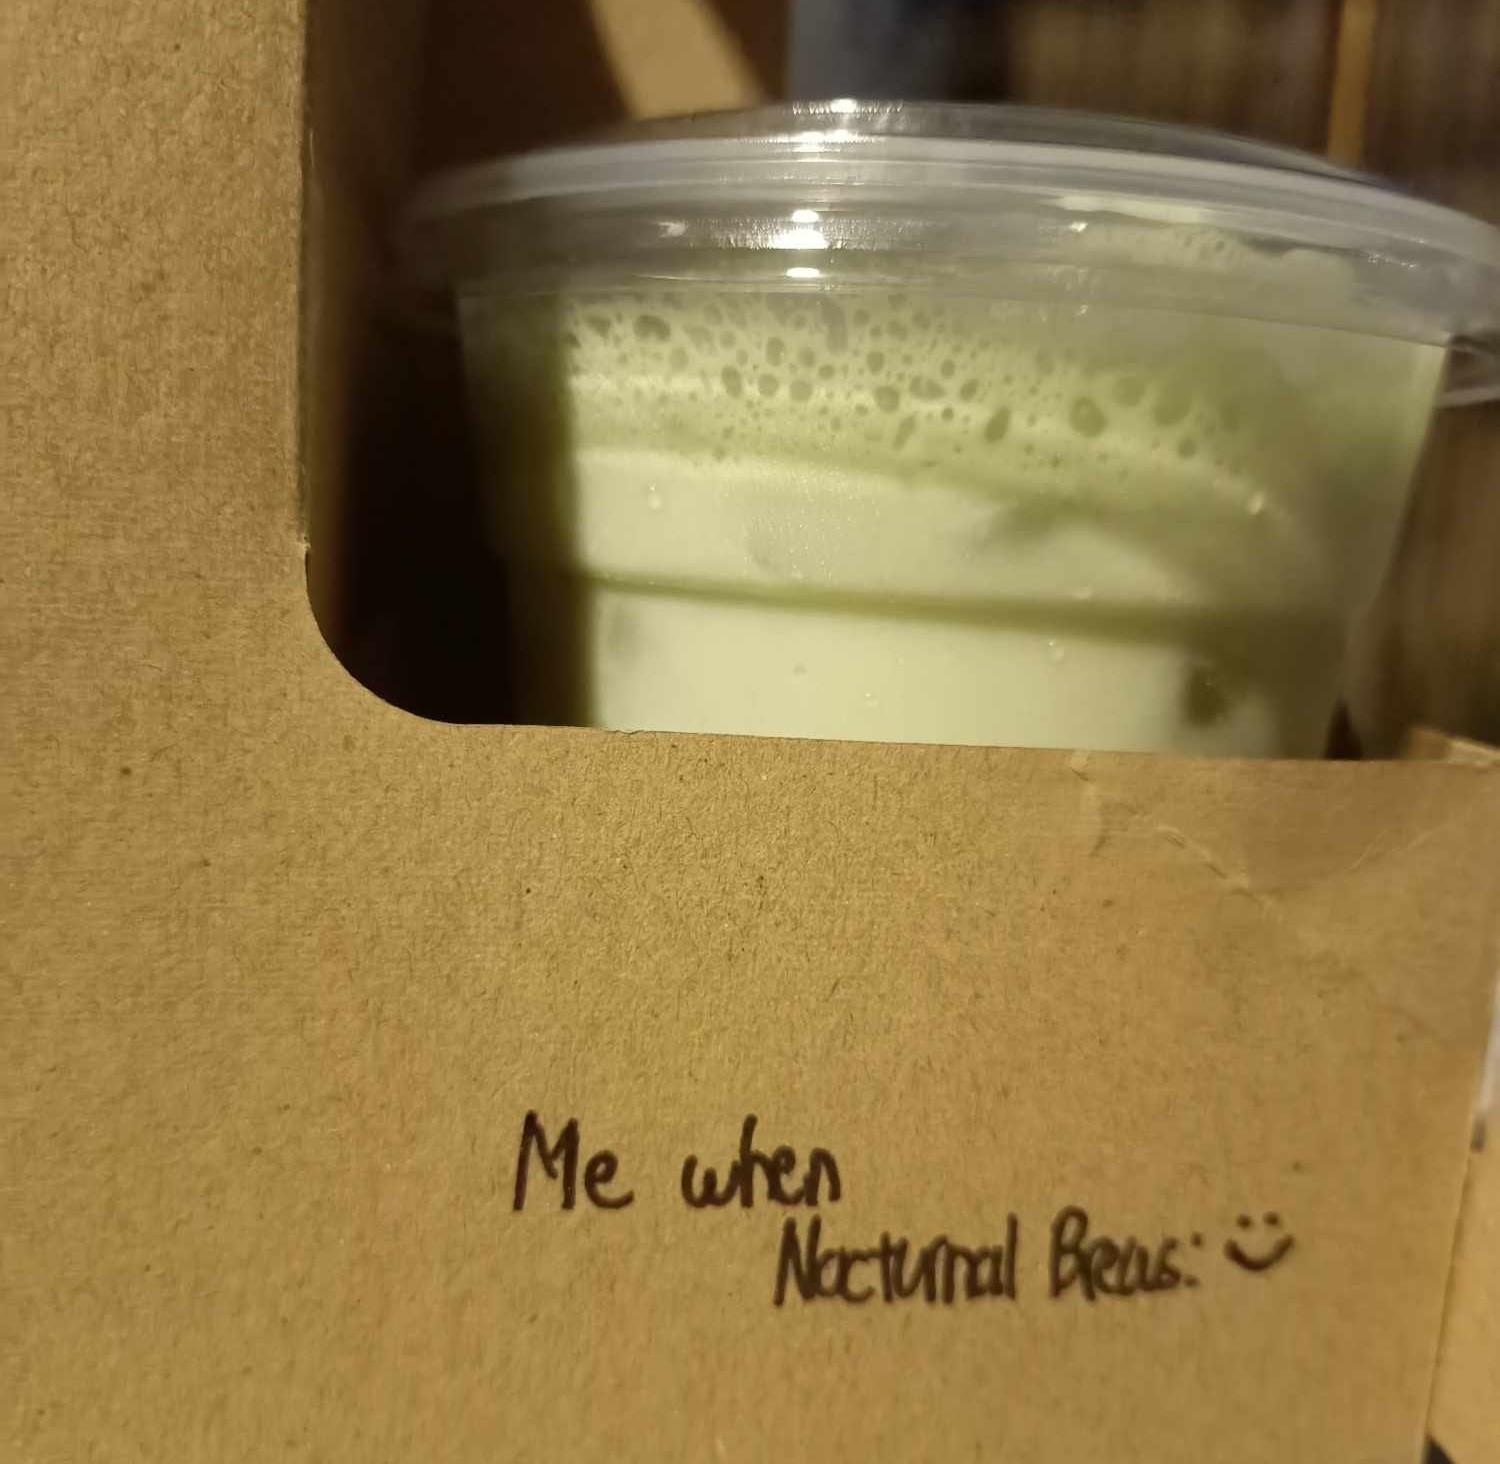 Me when
Nocturnal Brews: :)